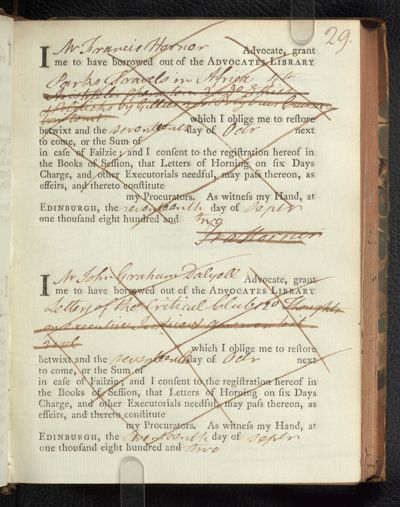 29.
I Mr Francis Horner Advocate, grant
me to have borrowed out of the ADVOCATES LIBRARY
Parks Travels in Africa 4to
which I oblige me to restore
betwixt and the seventeenth day of Octr next
to come, or the Sum of
in case of Failzie; and I consent to the registration hereof in
the Books of Session, that Letters of Horning on six Days
Charge, and other Executorials needful, may pass thereon, as
effeirs, and thereto constitute
my Procurators. As witness my Hand, at
EDINBURGH, the seventeenth day of Septr
one thousand eight hundred and two
Fra Horner
I Mr John Graham Dalyell Advocate, grant
me to have borrowed out of the ADVOCATES LIBRARY
Letters of the Critical Club Thoughts
on
which I oblige me to restore
betwixt and the seventeenth day of Octr next
to come, or the Sum of
in case of Failzie; and I consent to the registration hereof in
the Books of Session, that Letters of Horning on six Days
Charge, and other Executorials needful, may pass thereon, as
effeirs, and thereto constitute
my Procurators. As witness my Hand, at
EDINBURGH, the seventeenth day of Septr
one thousand eight hundred and two